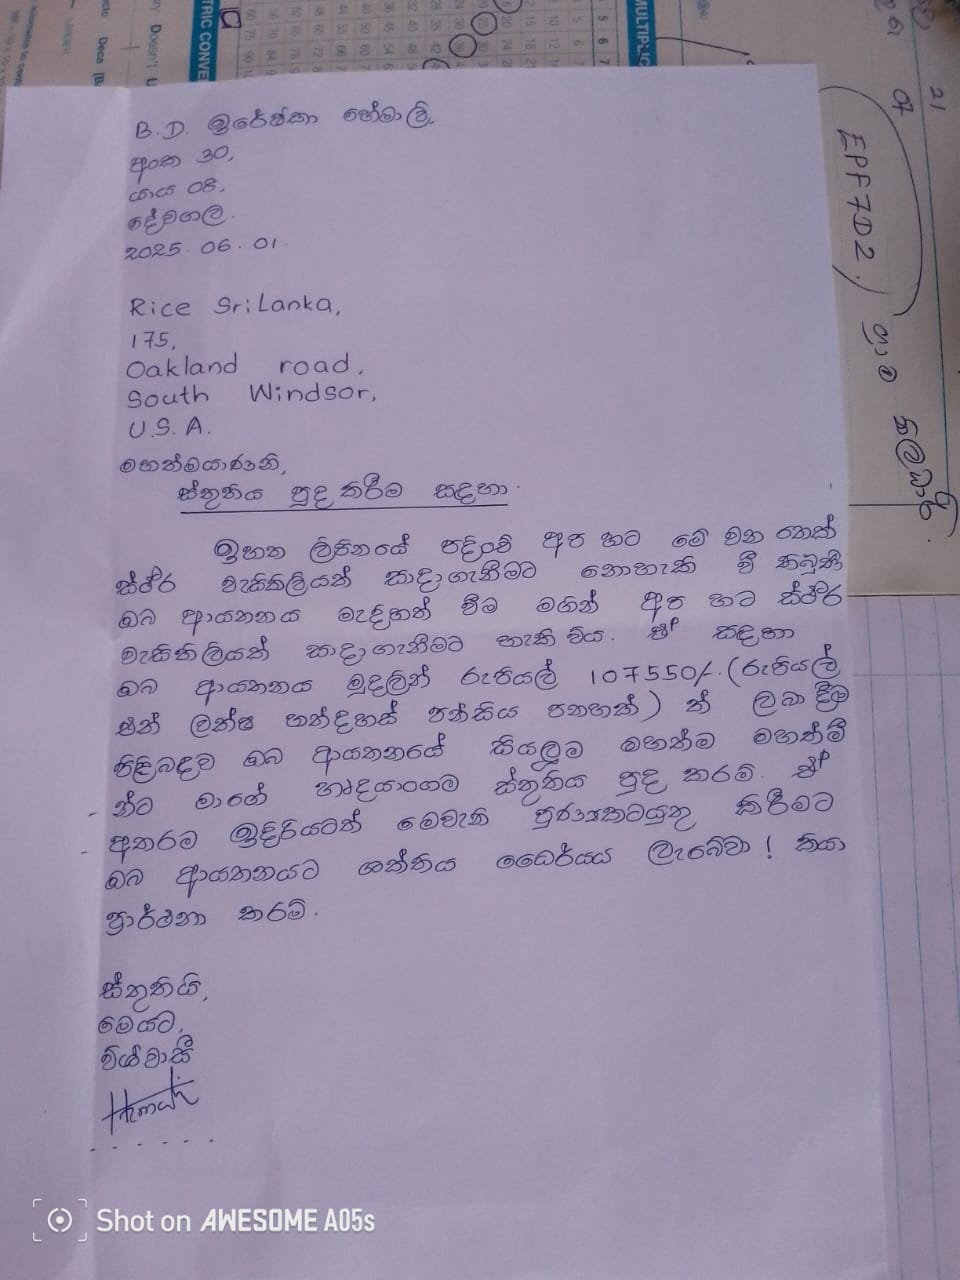 B.D. ඉරේෂිකා හේමාලි.
අංක 30,
යාය 08,
දේවගල.
2025.06.01.
Rice SriLanka,
175,
Oakland road,
South Windsor,
U.S.A.
මහත්මයාණනි,
ස්තුතිය පුද කිරීම සඳහා.
ඉහත ලිපිනයේ පදිංචි අප හට මේ වන තෙක්
ස්ථිර වැසිකිලියක් සාදාගැනීමට නොහැකි වී තිබුණි
ඔබ ආයතනය මැදිහත් වීම මගින් අප හට ස්ථිර
වැසිකිලියක් සාදාගැනීමට හැකි විය. ඒ සඳහා
ඔබ ආයතනය මුදලින් රුපියල් 107550/. (රුපියල්
එක් ලක්ෂ හත්දහස් පන්සිය පනහක්) ක් ලබා දීම
පිළිබඳව ඔබ ආයතනයේ සියලුම මහත්ම මහත්මී
න්ට මාගේ හෘදයාංගම ස්තුතිය පුද කරමි. ඒ
අතරම ඉදිරියටත් මෙවැනි පුණ්‍යකටයුතු කිරීමට
ඔබ ආයතනයට ශක්තිය ධෛර්යය ලැබේවා ! කියා
ප්‍රාර්ථනා කරමි.
ස්තුතියි,
මෙයට,
විශ්වාසී
EPF7D2
21
07
METRIC CONVE
MULTIPLIC
Deca
Doesn't
Shot on AWESOME A05s